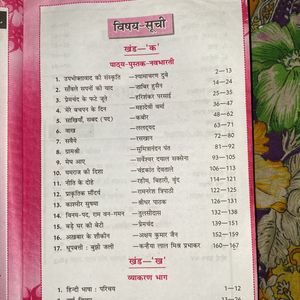 विषय-सूची
खंड—'क'
पाठ्य-पुस्तक-नवभारती
1. उपभोक्तावाद की संस्कृति —श्यामाचरण दुबे 2—13
2. साँवले सपनों की याद —जाबिर हुसैन 14—25
3. प्रेमचंद के फटे जूते —हरिशंकर परसाई 26—35
4. मेरे बचपन के दिन —महादेवी वर्मा 36—47
5. साखियाँ, सबद (पद) —कबीर 48—62
6. वाख —ललद्यद 63—71
7. सवैये —रसखान 72—80
8. ग्रामश्री —सुमित्रानंदन पंत 81—91
9. मेघ आए —सर्वेश्वर दयाल सक्सेना 92—103
10. यमराज की दिशा —चंद्रकांत देवताले
11. नीति के दोहे —रहीम, बिहारी, वृंद
12. प्राकृतिक सौंदर्य —रामनरेश त्रिपाठी 125—131
13. काश्मीर सुषमा —श्रीधर पाठक 132—136
14. विनय-पद, राम वन-गमन —तुलसीदास
15. बड़े घर की बेटी —प्रेमचंद
16. अखबार के शौकीन —अक्षय कुमार जैन
17. धूपबत्ती : बुझी जली —कन्हैया लाल मिश्र प्रभाकर 160—167
खंड—'ख'
व्याकरण भाग
1. हिन्दी भाषा : परिचय 1—12